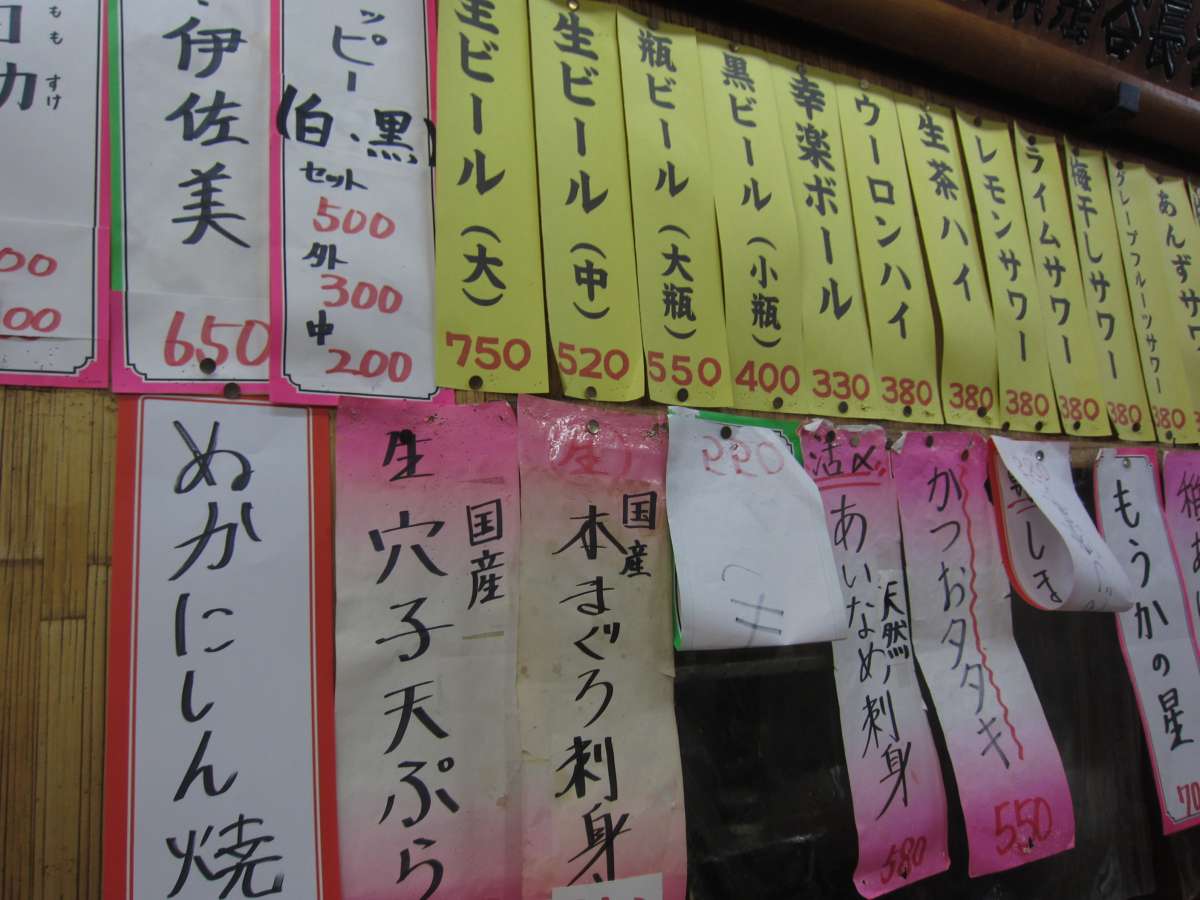 もも すけ
力
00
00
伊佐美
650
ッピー
(白・黒)
セット
500
外
300
中
200
生ビール(大)
750
生ビール(中)
520
瓶ビール(大瓶)
550
黒ビール(小瓶)
400
幸楽ボール
330
ウーロンハイ
380
生茶ハイ
380
レモンサワー
380
ライムサワー
380
梅干しサワー
380
グレープフルーツサワー
380
あんずサワ
ぬかにしん焼
生
国産
穴子天ぷら
(生)
国産
本まぐろ刺身
活〆
天然
あいなめ刺身
580
かつおタタキ
550
もうかの星
70